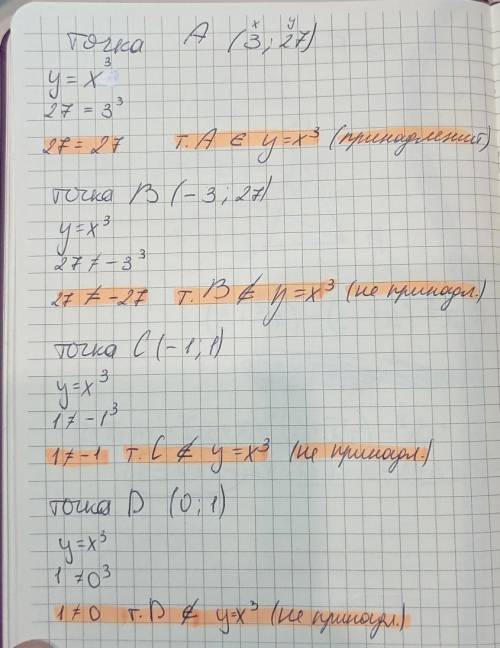 x y
точка A (3; 27)
y = x³
27 = 3³
27 = 27 т. A ∈ y = x³ (принадлежит)
точка B (-3; 27)
y = x³
27 ≠ -3³
27 ≠ -27 т. B ∉ y = x³ (не принадл.)
точка C (-1; 1)
y = x³
1 ≠ -1³
1 ≠ -1 т. C ∉ y = x³ (не принадл.)
точка D (0; 1)
y = x³
1 ≠ 0³
1 ≠ 0 т. D ∉ y = x³ (не принадл.)